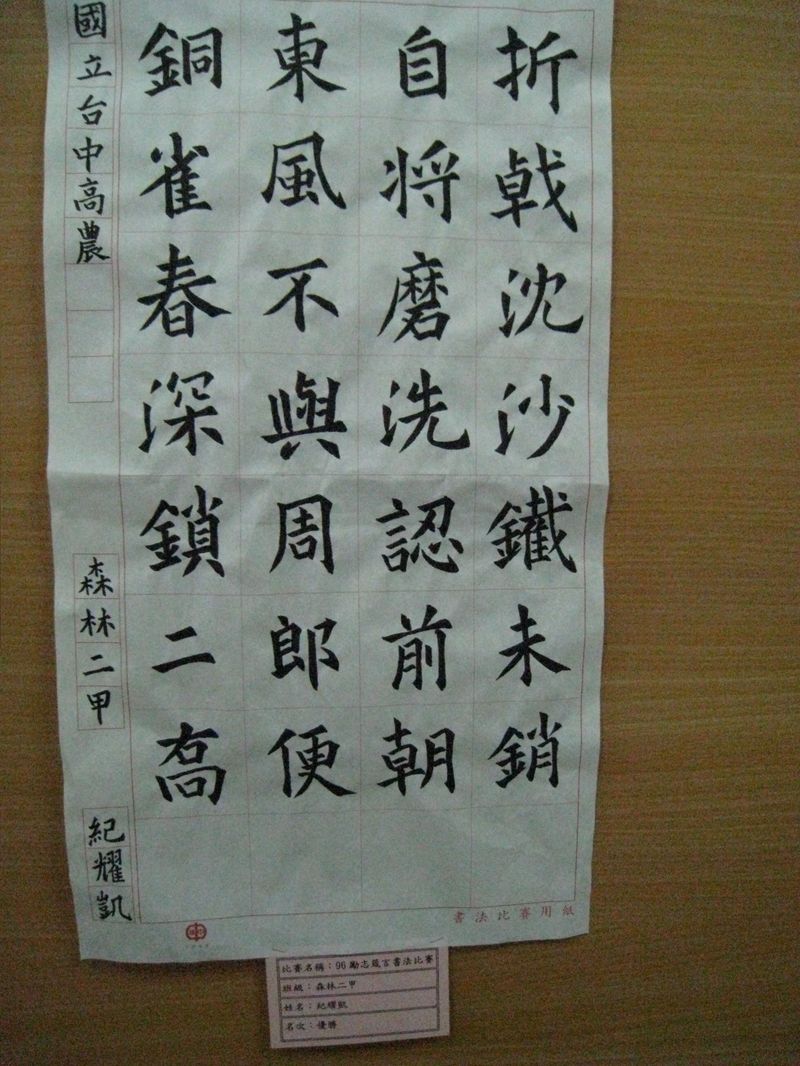 折戟沈沙鐵未銷
自将磨洗認前朝
東風不與周郎便
銅雀春深鎖二喬
國立台中高農
森林二甲
紀耀凱
書法比賽用紙
比賽名稱：96勵志箴言書法比賽
班級：森林二甲
姓名：紀耀凱
名次：優勝